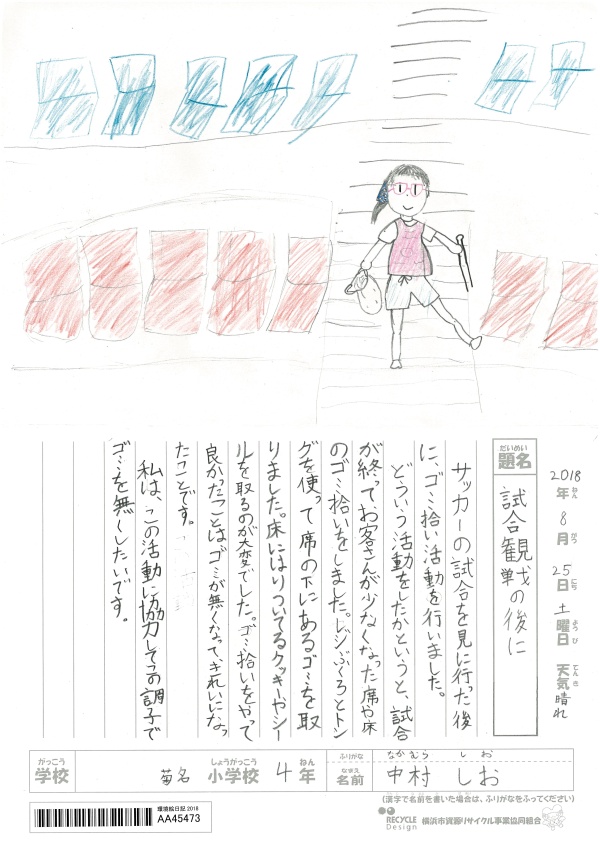 2018年ねん 8月がつ 25日にち 土曜日ようび 天気てんき 晴れ
だいめい
題名
試合観戦の後に
サッカーの試合を見に行った後
に、ゴミ拾い活動を行いました。
どういう活動をしたかというと、試合
が終ってお客さんが少なくなった席や床
のゴミ拾いをしました。レジぶくろとトン
グを使って席の下にあるゴミを取
りました。床にはりついてるクッキーやシー
ルを取るのが大変でした。ゴミ拾いをやって
良かったことはゴミが無くなって、きれいになっ
たことです。
私は、この活動に協力しその調子で
ゴミを無くしたいです。
がっこう
学校
菊名
しょうがっこう
小学校
4
ねん
年
ふりがな
なかむら しお
なまえ
名前
中村 しお
(漢字で名前を書いた場合は、ふりがなをふってください)
環境絵日記 2018
AA45473
RECYCLE
Design
横浜市資源リサイクル事業協同組合